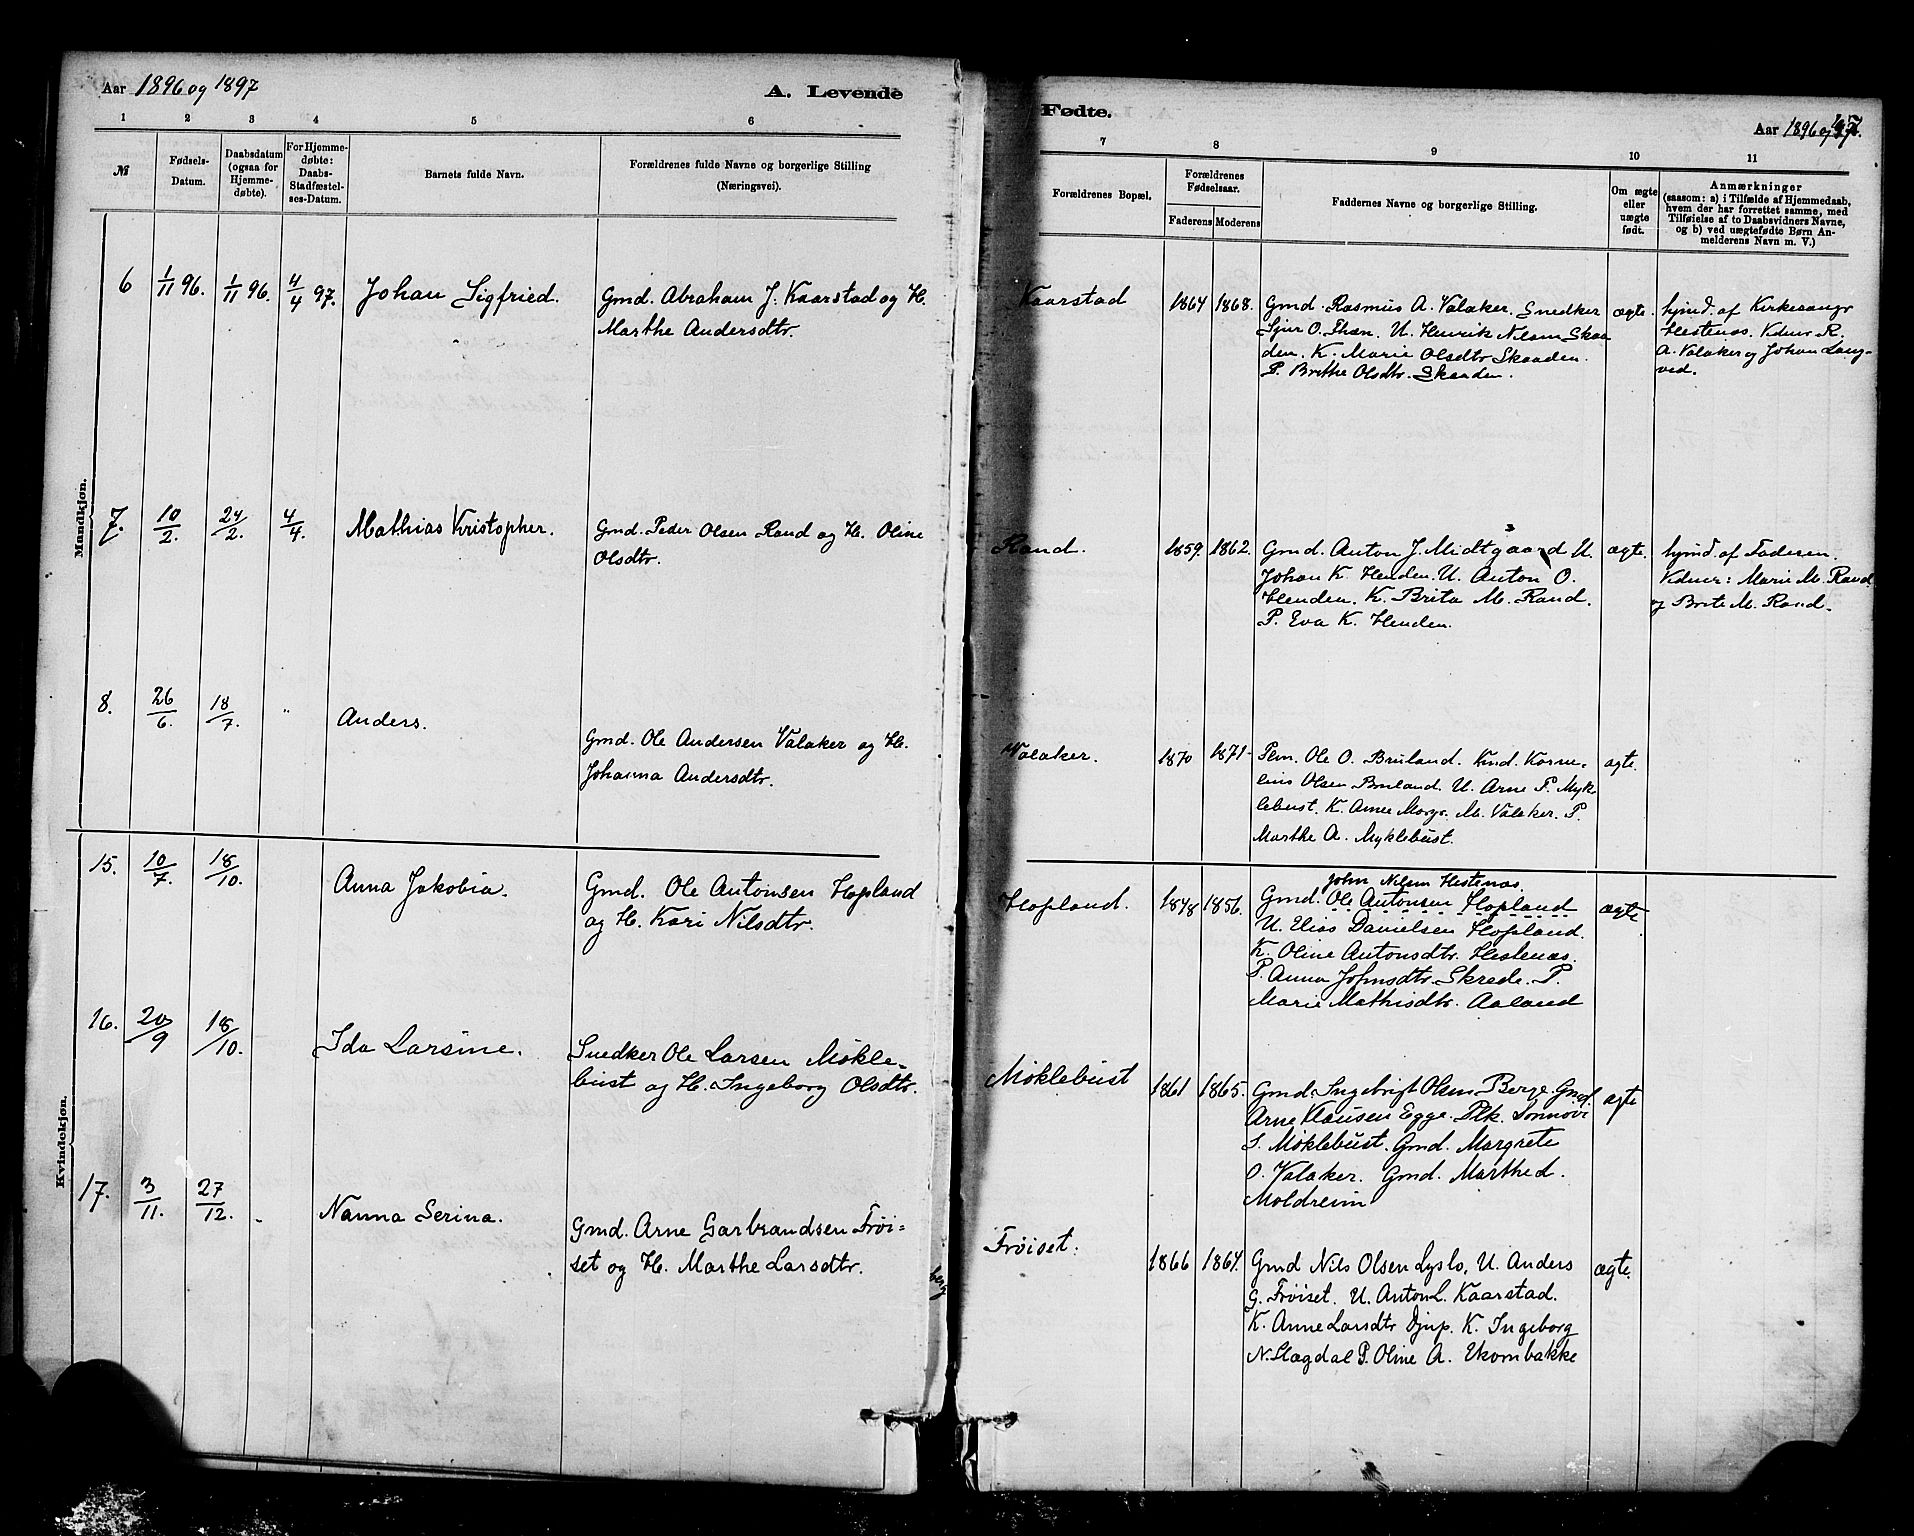 Aar 1896 og 1897
A. Levende
1 2 3 4 5 6
№
Fødsels-
Datum.
Daabsdatum
(ogsaa for
Hjemme-
døbte).
For Hjemme-
døbte:
Daabs-
Stadfæstel-
ses-Datum.
Barnets fulde Navn.
Forældrenes fulde Navne og borgerlige Stilling
(Næringsvei).
Mandkjøn.
6 1/11 96. 1/11 96. 4/4 97. Johan Sigfried.
Gmd. Abraham J. Kaarstad og H.
Marthe Andersdtr.
7. 10/2. 24/2. 4/4. Mathias Kristopher.
Gmd. Peder Olsen Rand og H. Oline
Olsdtr.
8. 26/6. 18/7. " Anders.
Gmd. Ole Andersen Valaker og H.
Johanna Andersdtr.
Kvindekjøn.
15. 10/7. 18/10. Anna Jakobia.
Gmd. Ole Antonsen Hopland
og H. Kari Nilsdtr.
16. 20/9 18/10. Ida Larsine.
Snedker Ole Larsen Møkle-
bust og H. Ingeborg Olsdtr.
17. 3/11. 27/12. Nanna Serina.
Gmd. Arne Garbrandsen Frøi-
set og H. Marthe Larsdtr.
Fødte.
Aar 1896 og 97.
7 8 9 10 11
Forældrenes Bopæl.
Forældrenes
Fødselsaar.
Faderens Moderens
Faddernes Navne og borgerlige Stilling.
Om ægte
eller
uægte
født.
Anmærkninger
(saasom: a) i Tilfælde af Hjemmedaab,
hvem der har forrettet samme, med
Tilføielse af to Daabsvidners Navne,
og b) ved uægtefødte Børn An-
melderens Navn m. V.)
Kaarstad 1864 1868. Gmd. Rasmus A. Valaker. Snedker
Sjur O. Thæn. U. Henrik Nilsen Skaa
den. K. Marie Olsdtr Skaaden.
P. Brithe Olsdtr. Skaaden.
ægte.
hjmd. af Kirkesangr
Hestenæs. Vdner R.
A. Valaker og Johan Lang-
ved.
Rand. 1859. 1862. Gmd. Anton J. Midtgaard U.
Johan K. Henden. U. Anton O.
Henden. K. Brita M. Rand.
P. Eva K. Henden.
ægte.
hjmd. af Faderen.
Vdner: Marie M. Rand
og Brite M. Rand.
Valaker. 1870 1871. Pem. Ole O. Bruland. Kmd. Korne-
lius Olsen Bruland. U. Arne P. Myk
lebust. K. Anne Margr. M. Valaker. P.
Marthe A. Myklebust.
ægte.
John Nilsen Hestenæs.
Hopland. 1848 1856. Gmd. Ole Antonsen Hopland
U. Elias Danielsen Hopland.
K. Oline Antonsdtr. Hestenæs.
P. Anna Johnsdtr. Skrede. P.
Marie Mathisdtr. Aaland
ægte
Møklebust 1861 1865. Gmd. Ingebrigt Olsen Berge. Gmd.
Arne Klausen Egge. Plk. Sonnovi
S. Møklebust. Gmd. Margrete
O. Valaker. Gmd. Marthe d.
Moldreim
ægte
Frøiset: 1866 1864. Gmd Nils Olsen Lyslo, U. Anders
G. Frøiset. U. Anton L. Kaarstad.
K. Anne Larsdtr Djup. K. Ingeborg
N. Slagdal P. Oline A. Ekornbakke
ægte.